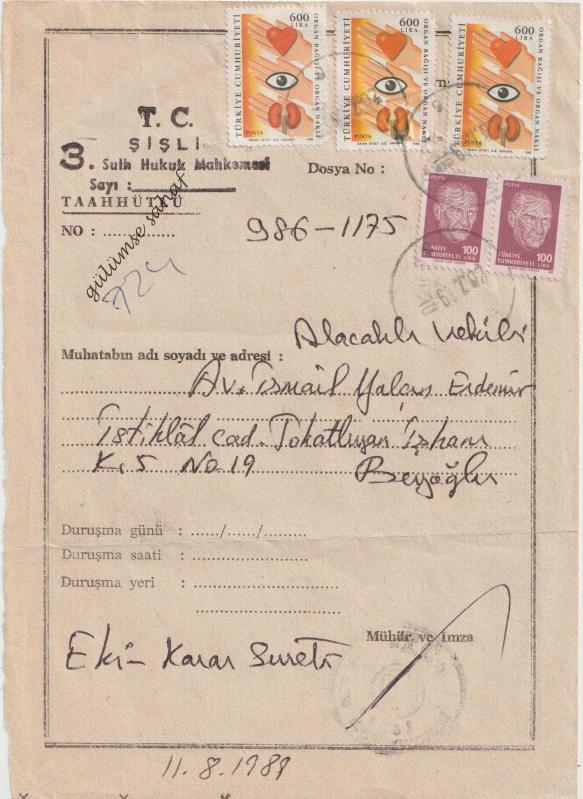 600 LİRA
TÜRKİYE CUMHURİYETİ
ORGAN BAĞIŞI VE ORGAN NAKLİ
POSTA
600 LİRA
TÜRKİYE CUMHURİYETİ
ORGAN BAĞIŞI VE ORGAN NAKLİ
POSTA
600 LİRA
TÜRKİYE CUMHURİYETİ
ORGAN BAĞIŞI VE ORGAN NAKLİ
POSTA
T. C.
ŞİŞLİ
3. Sulh Hukuk Mahkemesi
Sayı :
TAAHHÜTLÜ
NO : ...............
gülümse sahaf
Dosya No :
986-1175
POSTA
100 LİRA
TÜRKİYE CUMHURİYETİ
POSTA
100 LİRA
TÜRKİYE CUMHURİYETİ
Alacaklı vekili
Muhatabın adı soyadı ve adresi :
Av. İsmail Yalçın Erdemir
İstiklâl cad. Tokatlıyan İşhanı
K. 5 No 19 Beyoğlu
Duruşma günü : ....../....../.........
Duruşma saati : ........................
Duruşma yeri : ........................
Mühür ve İmza
Eki- Karar Sureti